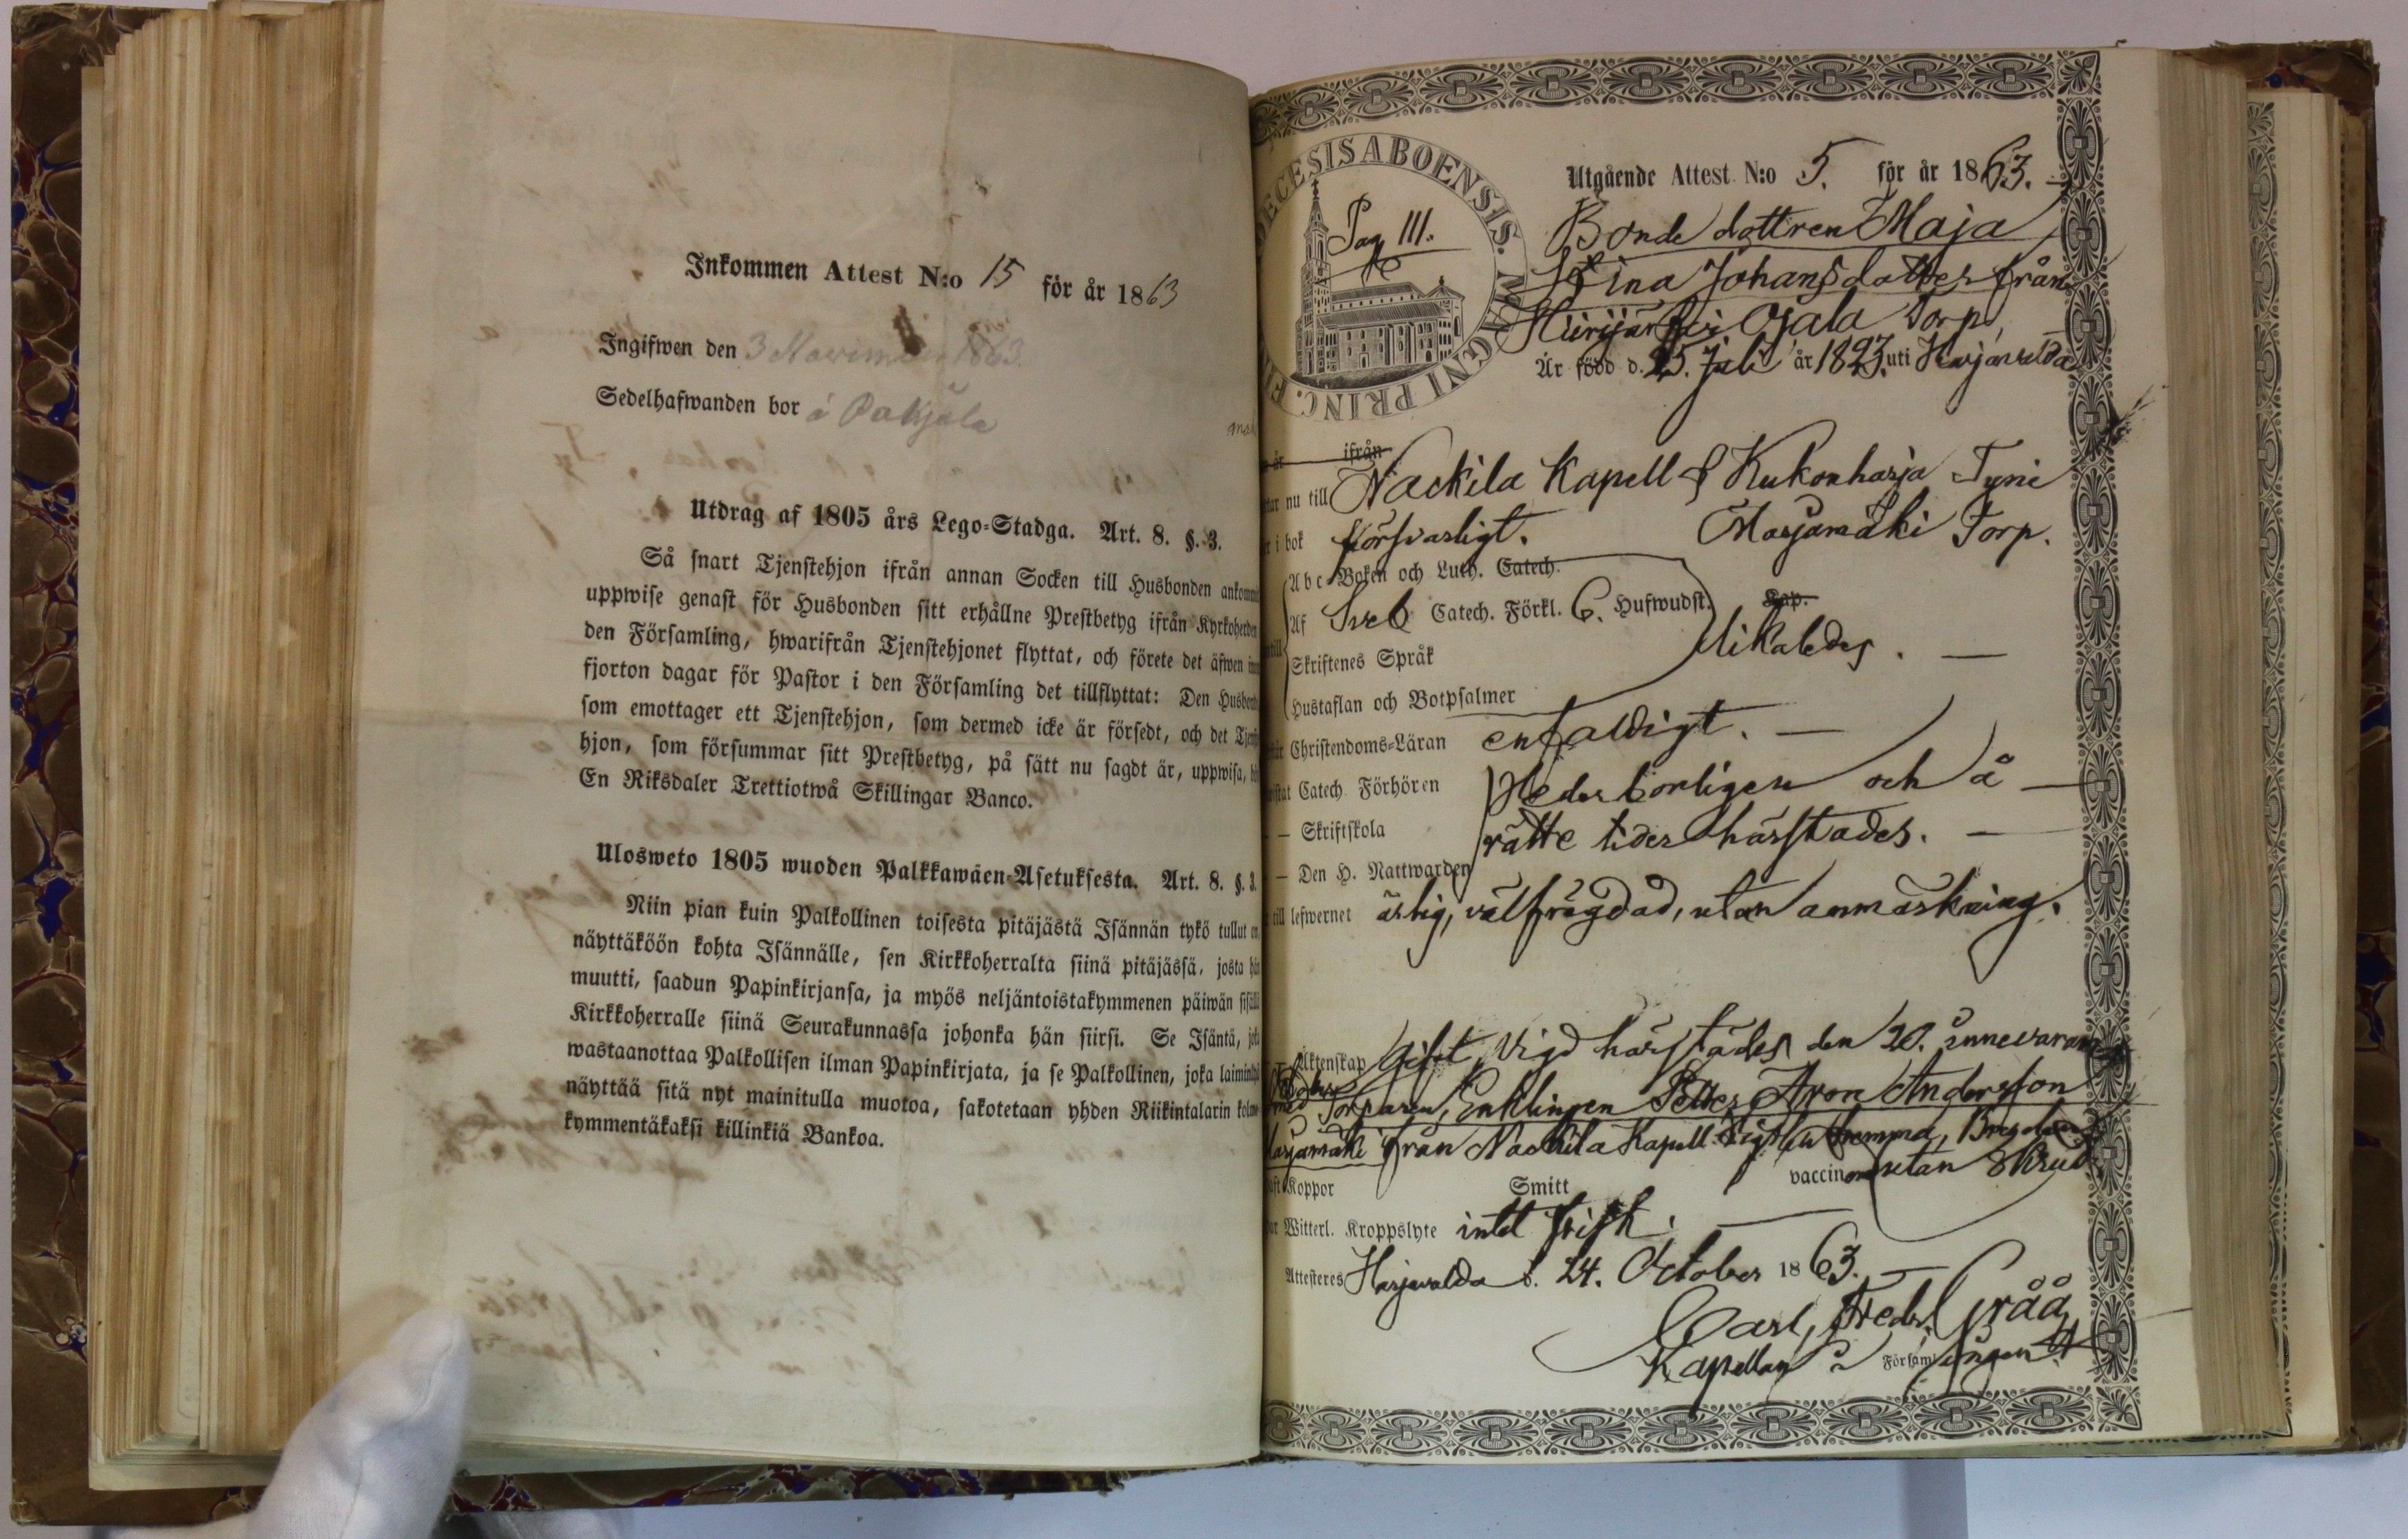 Inkommen Attest N:o 15 för år 1863
Ingifwen den 3 November 1863.
Sedelhafwanden bor å
Utdrag af 1805 års Lego-Stadga. Art. 8. §. 3.
Så snart Tjenstehjon ifrån annan Socken till Husbonden
uppwise genast för Husbonden sitt erhållne Prestbetyg ifrån Kyrkoherden
den Församling, hwarifrån Tjenstehjonet flyttat, och förete det äfwen
fjorton dagar för Pastor i den Församling det tillflyttat: Den
som emottager ett Tjenstehjon, som dermed icke är försedt, och det
hjon, som försummar sitt Prestbetyg, på sätt nu sagdt är, uppwisa,
En Riksdaler Trettiotwå Skillingar Banco.
Ulosweto 1805 wuoden Palkkawäen-Asetuksesta. Art. 8. §. 3.
Niin pian kuin Palkollinen toisesta pitäjästä Isännän tykö tullut on,
näyttäköön kohta Isännälle, sen Kirkkoherralta siinä pitäjässä, josta hän
muutti, saadun Papinkirjansa, ja myös neljäntoistakymmenen päiwän sisällä
Kirkkoherralle siinä Seurakunnassa johonka hän siirsi. Se Isäntä, joka
wastaanottaa Palkollisen ilman Papinkirjata, ja se Palkollinen, joka
näyttää sitä nyt mainitulla muotoa, sakotetaan yhden Riikintalarin
kymmentäkaksi killinkiä Bankoa.
ECESIS ABOENSIS. MAGNI PRINC. FI
Pag 111.
Utgående Attest N:o 5. för år 1863.
Bonde dottren Maja
Stina Johansdotter från
Hiirijärfvi Ojala Torp,
Är född d. 25. Juli år 1823. uti Harjavalda
år ifrån
nu till Nackila Kapell & Kukonharja Tyni
i bok försvarligt. Marjamäki Torp.
Abc Boken och Luth. Catech.
Af Sveb Catech. Förkl. 6. Hufwudst. Cap.
Skriftenes Språk likaledes.
Hustaflan och Botpsalmer
Christendoms-Läran enfaldigt.
Catech. Förhören Hederborligen och å
Skriftskola rätte tider härstädes.
Den H. Nattwarden
till lefwernet ärlig, välfrägdad, utan anmärkning.
Äktenskap Gift, Vigd härstädes den 20. innevarande
med Torparen, Enklingen Petter Aron Andersson
Marjamäki från Nackila Kapell
Koppor Smitt vaccin utan Skrud.
Witterl. Kroppslyte intet frisk.
Attesteras Harjavalda d. 24. October 1863.
Carl, Fredr. Gråå
Kapellan i Församlingen